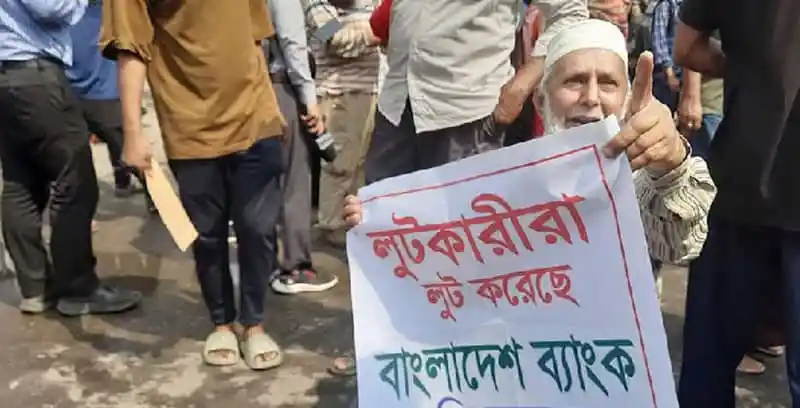 লুটকারীরা
লুট করেছে
বাংলাদেশ ব্যাংক